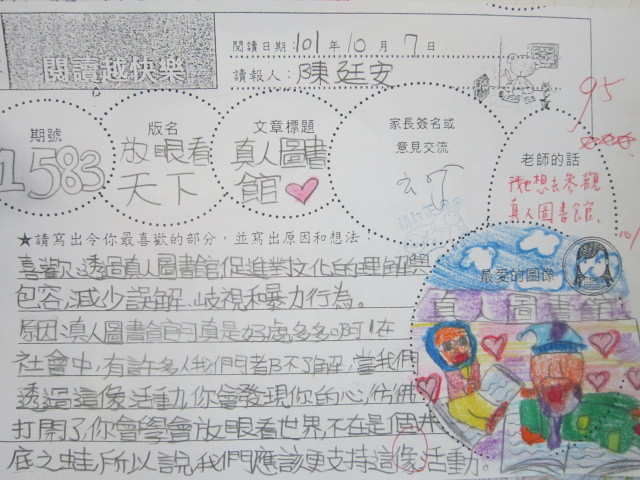 閱讀越快樂
閱讀日期：101年10月7日
讀報人：陳廷安
期號
1583
版名
放眼看
天下
文章標題
真人圖書
館
家長簽名或
意見交流
老師的話
我也想去參觀
真人圖書館。
95
★請寫出令你最喜歡的部分，並寫出原因和想法
喜歡：透過真人圖書館促進對文化的理解與
包容，減少誤解、歧視和暴力行為。
原因：真人圖書館可真是好處多多啊！在
社會中，有許多人我們都不了解，當我們
透過這像活動，你會發現你的心，彷彿
打開了，你會學會放眼看世界，不在是個井
底之蛙，所以說，我們應該更支持這像活動。
最愛的圖像
真人圖書館